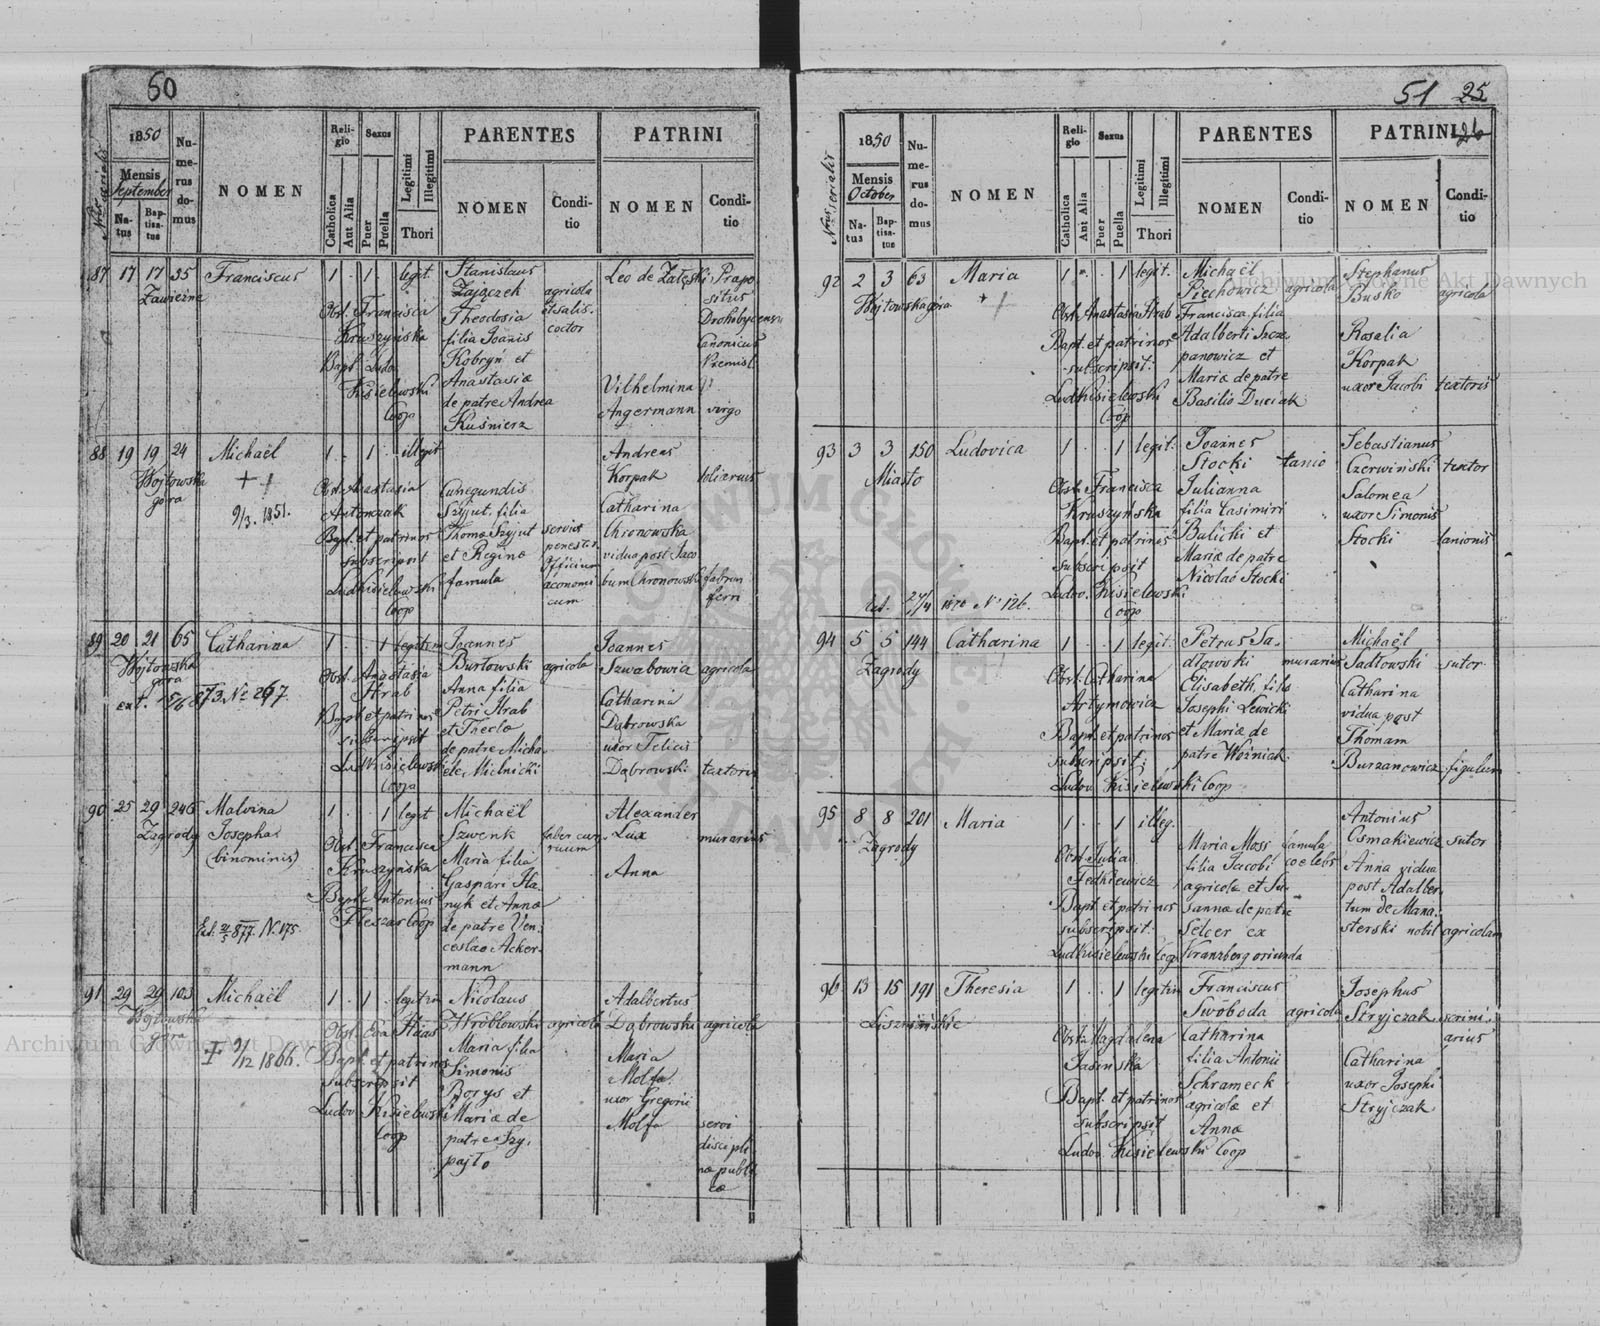 50
1850
Mensis
September
Natus
Baptisatus
Numerus domus
NOMEN
Religio
Catholica
Aut Alia
Sexus
Puer
Puella
Legitimi
Illegitimi
Thori
PARENTES
NOMEN
Conditio
PATRINI
NOMEN
Conditio
87 17 17 35 Franciscus 1 . 1 . legit.
Zawieżne
Obst. Francisca
Kruszyńska
Bapt. Ludo.
Kisielewski
Coop
Stanislaus
Zajączek
Theodosia
filia Joanis
Kobryń et
Anastasiæ
de patre Andrea
Kuśnierz
agricola
et salis.
coctor
Leo de Załęski
Vilhelmina
Angermann
Præpo-
situs
Drohobycensis
Canonicus
Premisl.
virgo
88 19 19 24 Michaël 1 . 1 . illegit
Wójtowska
góra
9/3. 1851.
Obst. Anastasia
Antonczak
Bapt. et patrinos
subscripsit
Lud Kisielewski
Coop
Cunegundis
Szyjut. filia
Thomæ Szyjut
et Reginæ
famula
Andreas
Korpak
Catharina
Chronowska
vidua post Jaco
bum Chronowski
doliarius
fabrum
ferri
89 20 21 65 Catharina 1 . . 1 legitim
Wójtowska
góra
Obst. Anastasia
Hrab
Bapt. et patrinos
subscripsit
Lud Kisielewski
Coop
Joannes
Burtowski
Anna filia
Petri Hrab
et Theclæ
de patre Micha-
ele Mielnicki
agricola
Joannes
Szwabowicz
Catharina
Dąbrowska
uxor Felicis
Dąbrowski
agricola
textoris
90 25 29 246 Malvina 1 . . 1 legit
Zagrody Josepha
(binominis)
Obst. Francisca
Kruszyńska
Bapt. Antonius
Coop
Michaël
Szwenk
Maria filia
Gaspari Ha-
nyk et Annæ
de patre Ven-
ceslao Acker-
mann
faber cur-
ruum
Alexander
Lux
Anna
murarius
91 29 29 103 Michaël 1 . 1 . legitim
Wójtowska
góra
9/12 1866.
Obst. Eva
Bapt. et patrinos
subscripsit
Ludov. Kisielewski
Coop
Nicolaus
Wróblowski
Maria filia
Simonis
Borys et
Mariæ de
patre Szy-
pajło
agricola
Adalbertus
Dąbrowski
Maria
Molfa
uxor Gregorii
Molfa
agricola
servi
discipli-
næ publi-
cæ
51 25
26
1850
Mensis
October
Natus
Baptisatus
Numerus domus
NOMEN
Religio
Catholica
Aut Alia
Sexus
Puer
Puella
Legitimi
Illegitimi
Thori
PARENTES
NOMEN
Conditio
PATRINI
NOMEN
Conditio
92 2 3 63 Maria 1 . . 1 legit.
Wójtowska góra
Obst. Anastasia Hrab
Bapt. et patrinos
subscripsit.
Lud Kisielewski
Coop
Michaël
Piechowicz
Francisca filia
Adalberti Szcze
panowicz et
Mariæ de patre
Basilio Duciak
agricola
Stephanus
Busko
Rosalia
Korpak
uxor Jacobi
agricola
textoris
93 3 3 150 Ludovica 1 . . 1 legit.
Miasto
1870 No 126.
Obst. Francisca
Kruszyńska
Bapt. et patrinos
subscripsit
Ludov. Kisielewski
Coop
Joannes
Stocki
Julianna
filia Casimiri
Bulicki et
Mariæ de patre
Nicolao Stocki
lanio
Sebastianus
Czerwiński
Salomea
uxor Simonis
Stocki
textor
lanionis
94 5 5 144 Catharina 1 . . 1 legit.
Zagrody
Obst. Catharina
Artymowicz
Bapt. et patrinos
subscripsit.
Ludov. Kisielewski Coop
Petrus Sa-
dłowski
Elisabeth. filia
Josephi Lewicki
et Mariæ de
patre Woźniak
murarius
Michaël
Sadłowski
Catharina
vidua post
Thomam
Burzanowicz
sutor
figulum
95 8 8 201 Maria 1 . . 1 illeg.
Zagrody
Obst. Julia
Fedkiewicz
Bapt. et patrinos
subscripsit.
Lud Kisielewski Coop
Maria Moss
filia Jacobi
agricolæ et Su-
sannæ de patre
Selcer ex
Kranzberg oriunda
famula
coelebs
Antonius
Osmakiewicz
Anna vidua
post Adalber-
tum de Mana-
sterski nobil
sutor
agricolam
96 13 15 191 Theresia 1 . . 1 legitim
Liszniańskie
Obst. Magdalena
Jasińska
Bapt. et patrinos
subscripsit
Ludov. Kisielewski Coop
Franciscus
Swoboda
Catharina
filia Antonii
Schrameck
agricolæ et
Annæ
agricola
Josephus
Stryjczak
Catharina
uxor Josephi
Stryjczak
scrini-
arius
Archiwum Główne Akt Dawnych
Archiwum Główne Akt Dawnych